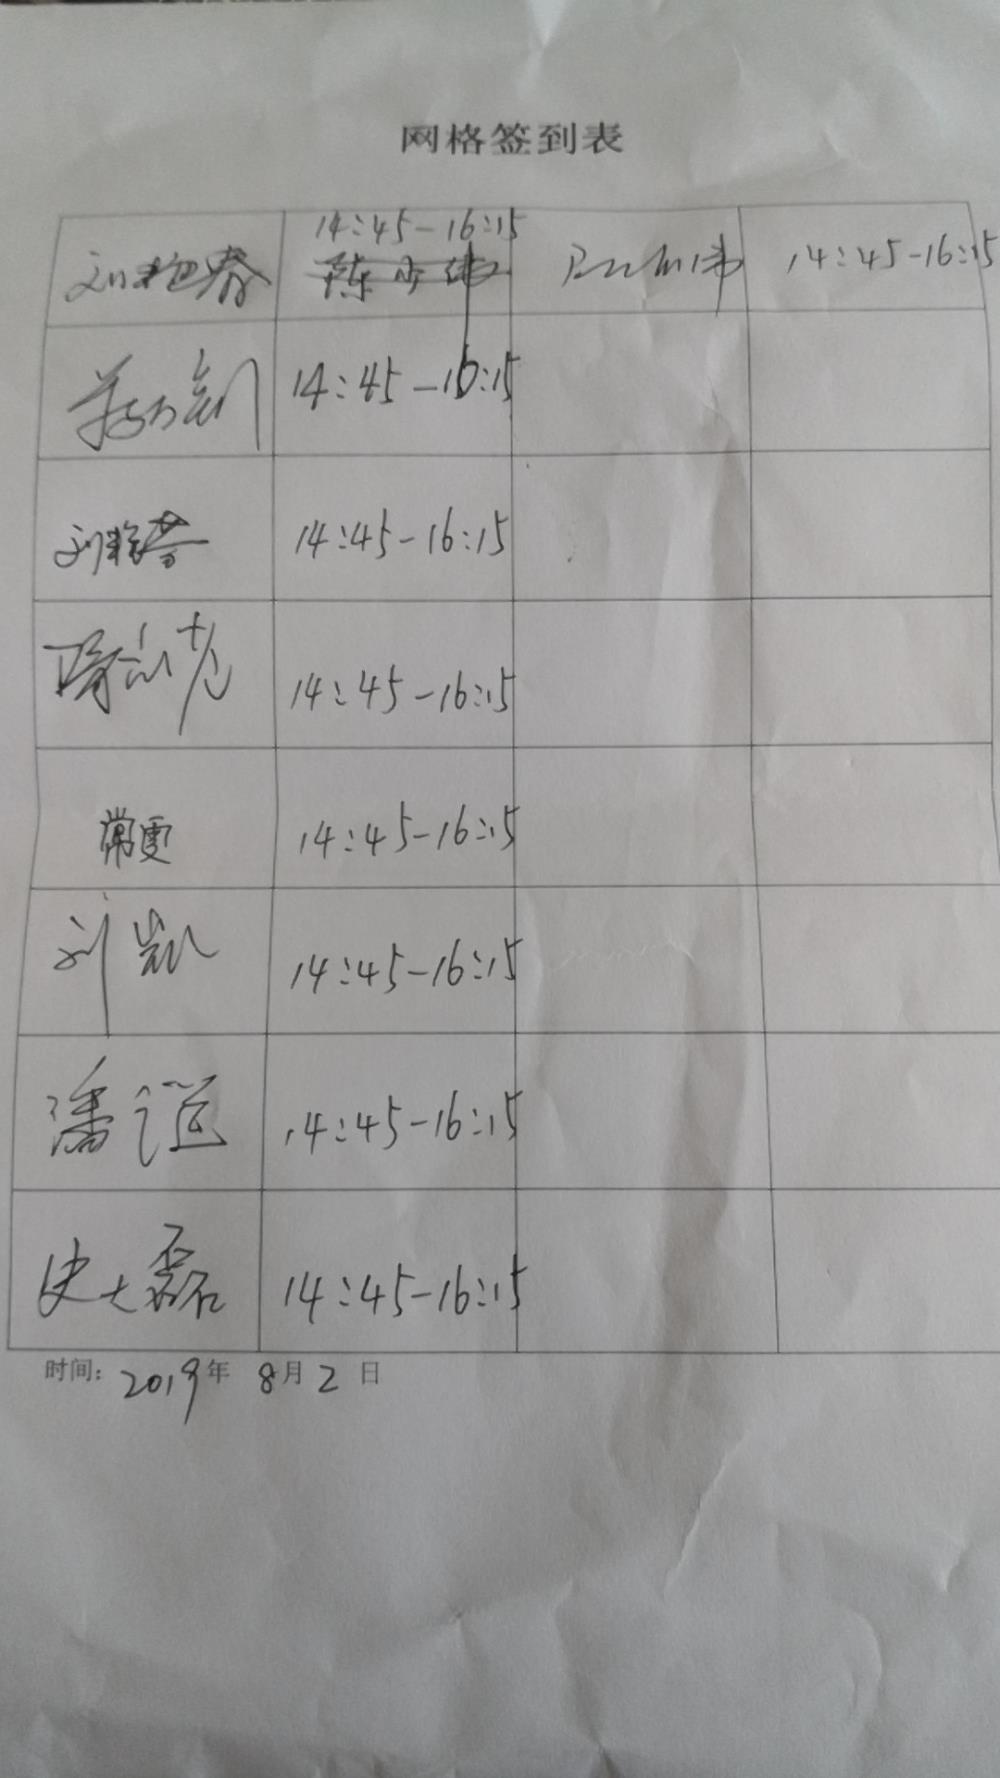 网格签到表
14:45-16:15
刘艳春 陈少伟 14:45-16:15
14:45-16:15
刘艳芳 14:45-16:15
14:45-16:15
常更 14:45-16:15
刘凯 14:45-16:15
潘谊 14:45-16:15
史大磊 14:45-16:15
时间: 2019年 8月 2 日